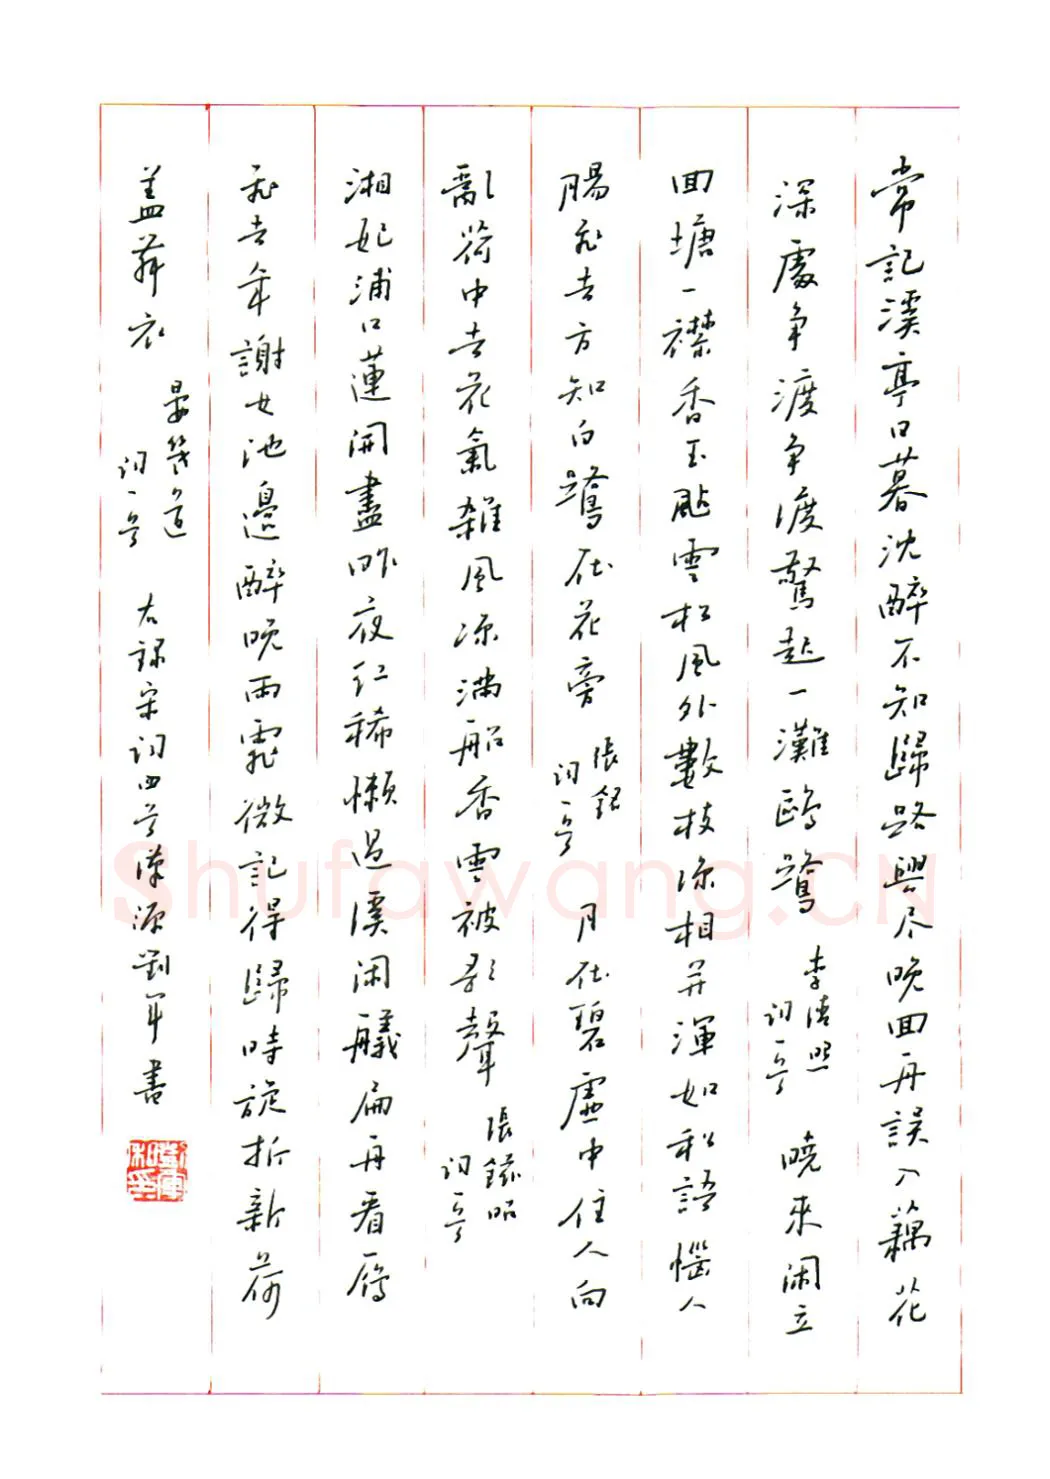 常記溪亭日暮沈醉不知歸路興尽晚回舟誤入藕花
深處争渡争渡驚起一灘鷗鷺 李清照詞一首 曉來闲立
回塘一襟香玉颭雲松風外數枝凉相并渾如私語惱人
腸飛去方知白鷺在花旁 張銘詞一首 月在碧虛中住人向
亂荷中去花氣雜風凉滿船香雲被歌聲 張鎡昭詞一首
湘妃浦口蓮開盡昨夜紅稀懶過溪闲艤扁舟看雁
飛去年謝女池邊醉晚雨霏微記得歸時旋折新荷
盖舞衣 晏幾道詞一首 右録宋詞四首漢源劉軍書
Shufawang.CN